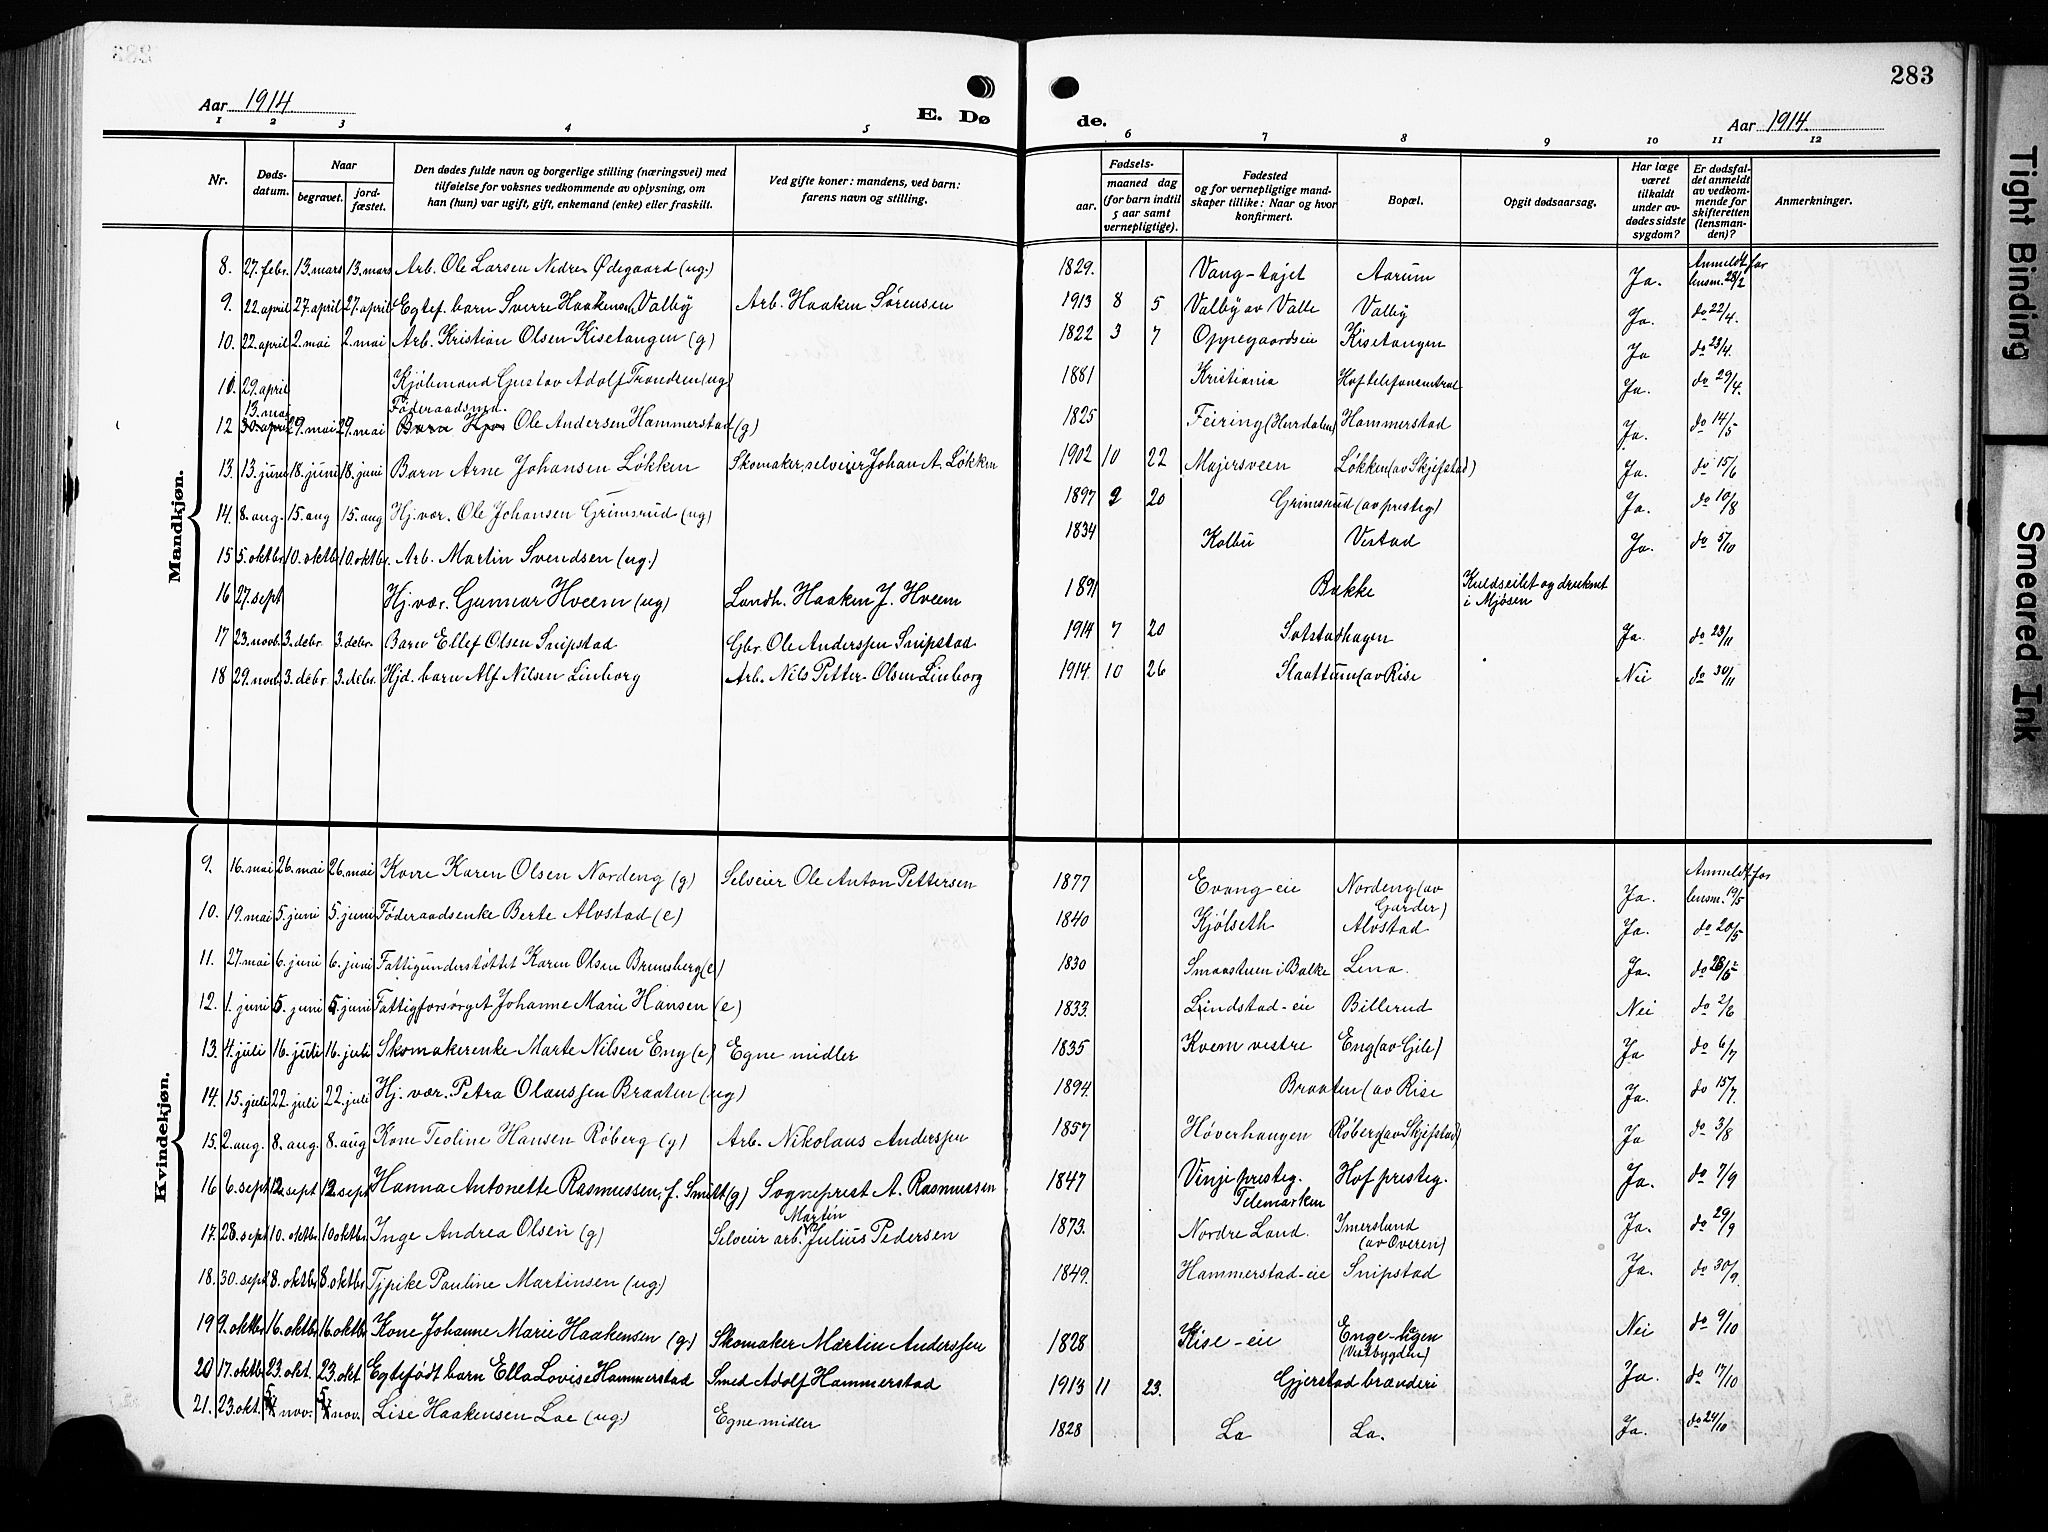 283
Aar 1914
E. Døde.
Aar 1914.
1 2 3 4 5 6 7 8 9 10 11 12
Nr.
Døds-datum.
Naar
begravet.
jord-fæstet.
Den dødes fulde navn og borgerlige stilling (næringsvei) med
tilføielse for voksnes vedkommende av oplysning, om
han (hun) var ugift, gift, enkemand (enke) eller fraskilt.
Ved gifte koner: mandens, ved barn:
farens navn og stilling.
Fødsels-
aar.
maaned dag
(for barn indtil
5 aar samt
vernepligtige).
Fødested
og for vernepligtige mand-
skaper tillike: Naar og hvor
konfirmert.
Bopæl.
Opgit dødsaarsag.
Har læge
været
tilkaldt
under av-
dødes sidste
sygdom?
Er dødsfal-
det anmeldt
av vedkom-
mende for
skifteretten
(lensman-
den)?
Anmerkninger.
Mandkjøn.
8. 27. febr. 13. mars 13. mars Arb. Ole Larsen Nedre Ødegaard (ug.) 1829. Vang-tøjet Aarum Ja. Anmeldt for lensm. 28/2
9. 22. april 27. april 27. april Egtef. barn Sverre Haakensen Valby Arb. Haaken Sørensen 1913 8 5 Valby av Valle Valby Ja. do 22/4.
10. 22. april 2. mai 2. mai Arb. Kristian Olsen Kisetangen (g) 1822 3 7 Oppegaardseie Kisetangen Ja do 23/4.
11. 29. april Kjøbmand Gustav Adolf Trondsen (ug) 1881 Kristiania Hof telefoncentral Ja. do 29/4.
12 13. mai 30. april 29. mai 29. mai Føderaadsmd. Barn Ole Andersen Hammerstad (g) 1825 Feiring (Hurdalen) Hammerstad Ja. do 14/5
13. 13. juni 18. juni 18. juni Barn Arne Johansen Løkken Skomaker, selveier Johan A. Løkken 1902 10 22 Majersveen Løkken (av Skjefstad) Ja. do 15/6
14. 8. aug. 15. aug 15. aug Hj. vær. Ole Johansen Grimsrud (ug) 1897 2 20 Grimsrud (av presteg) Ja. do 10/8
15 5. oktbr. 10. oktbr 10. oktbr. Arb. Martin Svendsen (ug.) 1834 Kolbu Vestad Ja. do 5/10
16 27. sept Hj. vær. Gunnar Hveem (ug) Landh. Haaken J. Hveem 1891 Bakke Kuldseilet og druknet i Mjøsen
17 23. novb. 3. debr. 3. debr. Barn Ellef Olsen Snipstad Gbr. Ole Anderssen Snipstad 1914 7 20 Sotstadhagen Ja. do 23/11
18 29. novb. 3. debr 3. debr. Hjd. barn Alf Nilsen Linborg Arb. Nils Petter Olsen Linborg 1914. 10 26 Slaattum (av Rise Nei do 30/11
Kvindekjøn.
9. 16. mai 26. mai 26. mai Kone Karen Olsen Nordeng (g) Selveier Ole Anton Pettersen 1877 Evang-eie Nordeng (av Garder) Ja. Anmeldt for lensm. 19/5
10. 19. mai 5. juni 5. juni Føderaadsenke Berte Alvstad (e) 1840 Kjølseth Alvstad Ja. do 20/5
11. 27. mai 6. juni 6. juni Fattigunderstøttet Karen Olsen Brunsberg (e) 1830 Smaastuen i Balke Lena. Ja. do 28/5
12. 1. juni 5. juni 5. juni Fattigforsørget Johanne Marie Hansen (e) 1833. Lindstad-eie Billerud Nei do 2/6
13. 4. juli 16. juli 16. juli Skomakerenke Marte Nilsen Eng (e) Egne midler 1835 Kvem vestre Eng (av Gile) Ja do 6/7
14. 15. juli 22. juli 22. juli Hj. vær. Petra Olaussen Braaten (ug) 1894. Braaten (av Rise Ja. do 15/7.
15. 2. aug. 8. aug. 8. aug Kone Teoline Hansen Røberg (g) Arb. Nikolaus Anderssen 1857 Høverhaugen Røberg (av Skjefstad) Ja do 3/8
16 6. sept 12. sept 12. sept Hanna Antonette Rasmussen, f. Smitt (g) Sogneprest A. Rasmussen 1847 Vinje presteg. Telemarken Hof presteg. Ja. do 7/9
17. 28. sept 10. oktbr 10 oktbr. Inge Andrea Olsen (g) Selveier arb. Martin Julius Pedersen 1873. Nordre Land. Smerslund (av Overen) Ja. do 29/9
18. 30. sept 8. oktbr 8. oktbr Tjpike Pauline Martinsen (ug.) 1849. Hammerstad-eie Snipstad Ja. do 30/9.
19 9. oktbr 16. oktbr 16. oktbr Kone Johanne Marie Haakensen (g) Skomaker Martin Anderssen 1828 Kise-eie Enge-lagen (Vestbygden) Nei do 9/10
20 17. oktbr 23. okt. 23. okt Egtefødt barn Ella Lovise Hammerstad Smed Adolf Hammerstad 1913 11 23. Gjerstad brænderi Ja. do 17/10
21. 23. okt. 5. nov. 5. nov. Lise Haakensen Loe (ug.) Egne midler 1828 La La. Ja. do 24/10
Tight Binding
Smeared Ink